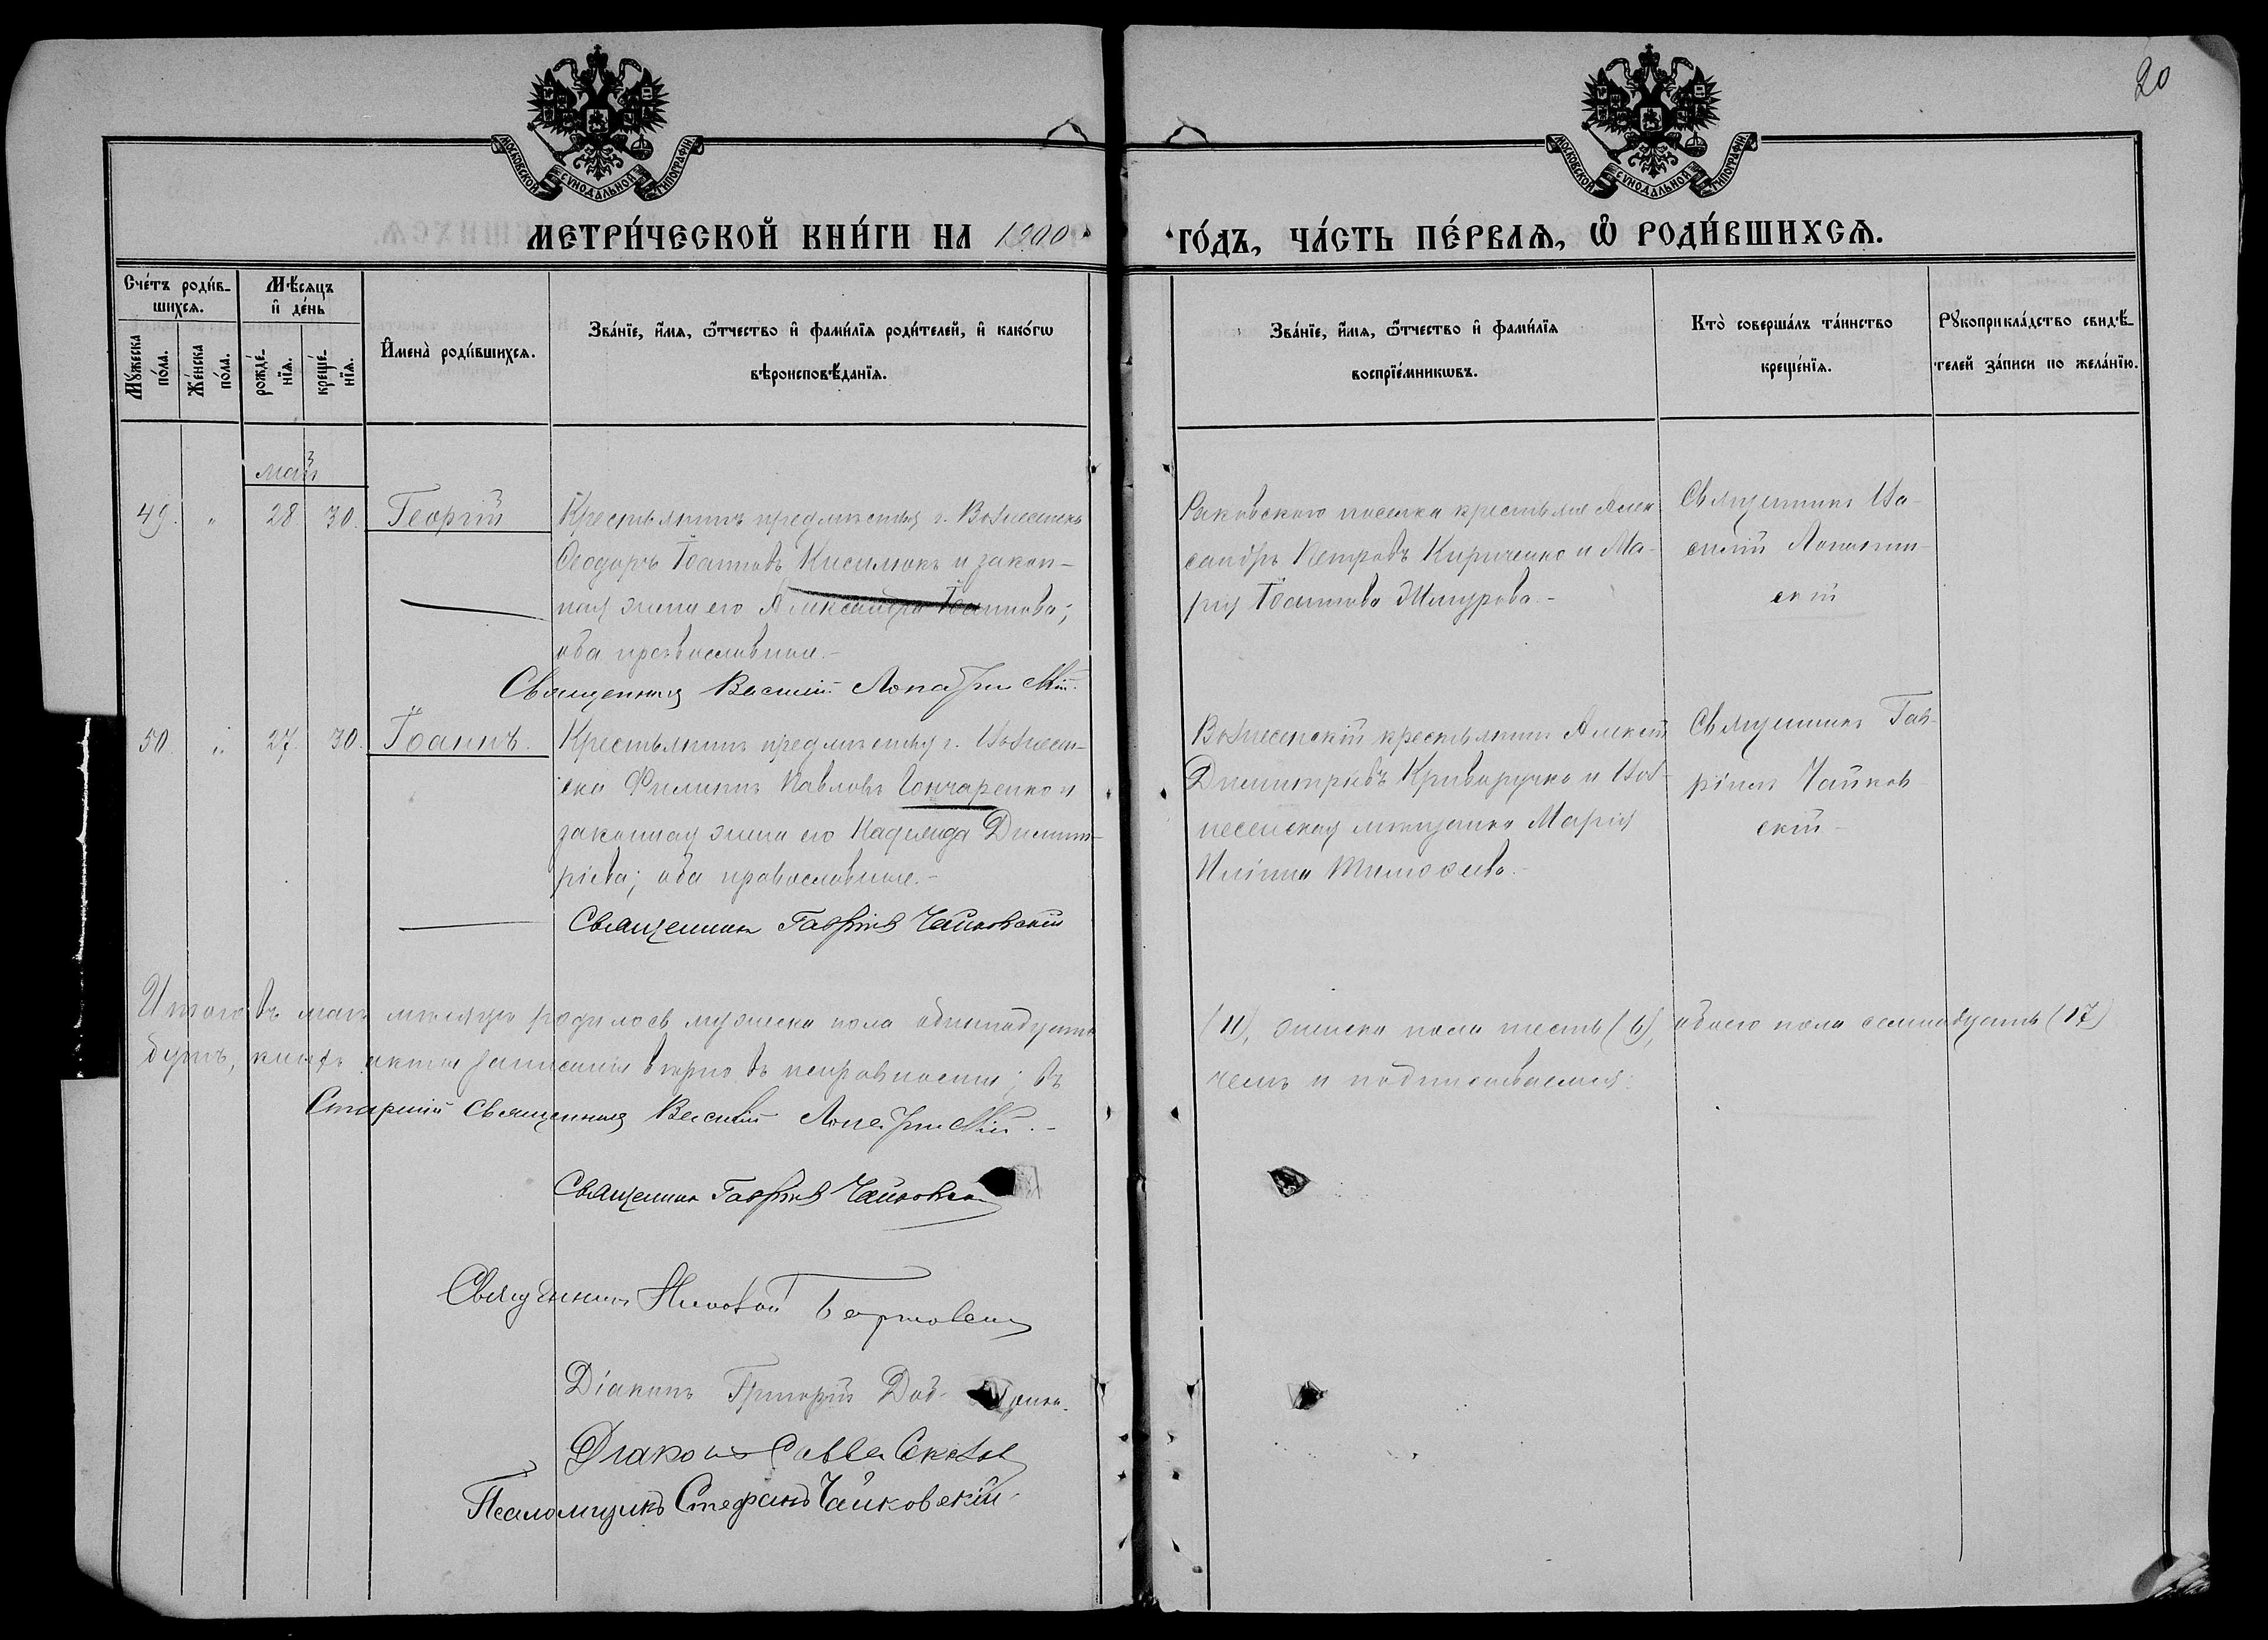 20
МОСКОВСКОЙ СѴНОДАЛЬНОЙ ТИПОГРАФІИ
МОСКОВСКОЙ СѴНОДАЛЬНОЙ ТИПОГРАФІИ
МЕТРИ́ЧЕСКОЙ КНИ́ГИ НА 1900
ГО́ДЪ, ЧА́СТЬ ПЕ́РВАѦ, Ѽ РОДИ́ВШИХСѦ.
Сче́тъ роди́в-
шихсѧ.
Мꙋ́жеска по́ла.
Же́нска по́ла.
Мѣ́сѧцъ
и҆ де́нь
рожде́-
нїѧ.
креще́-
нїѧ.
И҆мена̀ роди́вшихсѧ.
Зва́нїе, и҆́мѧ, ѻ҆́тчество и҆ фами́лїѧ роди́телей, и҆ како́гѡ
вѣроисповѣ́данїѧ.
Зва́нїе, и҆́мѧ, ѻ҆́тчество и҆ фами́лїѧ
воспрїе́мникѡвъ.
Кто̀ соверша́лъ та́инство
креще́нїѧ.
Рꙋкоприкла́дство свидѣ́-
телей за́писи по жела́нїю.
май
49. " 28 30. Георгій
Крестьянинъ предмѣстья г. Вознесенска
Ѳеодоръ Іоанновъ Кисилюкъ и закон-
ная жена его Александра Іоаннова;
оба православные.-
Священникъ Василій Лопатинскій.
Раковского поселка крестьяне Алек
сандръ Петровъ Кириченко и Ма-
рія Іоаннова Жмурова.-
Священникъ Ва-
силій Лопатин-
скій
50. " 27. 30. Іоаннъ.
Крестьянинъ предмѣстья г. Вознесен-
ска Филиппъ Павловъ Гончаренко и
законная жена его Надежда Димит-
ріева; оба православные.-
Священникъ Гавріилъ Чайковскій
Вознесенскій крестьянинъ Алексій
Димитріевъ Криворучко и Воз-
несенская мѣщанка Марія
Священникъ Гав-
ріилъ Чайков
скій-
Итого въ маѣ мѣсяцѣ родилось мужеска пола одиннадцать
(11), женска пола шесть (6), обоего пола семнадцать (17)
актовъ записанія вѣрно въ исправности; въ
чемъ и подписываемся:
Старшій Священникъ Василій Лопатинскій.-
Священникъ Гавріилъ Чайковскій
Священникъ Николай
Діаконъ Григорій
Діаконъ Савва
Псаломщикъ Стефанъ Чайковскій.